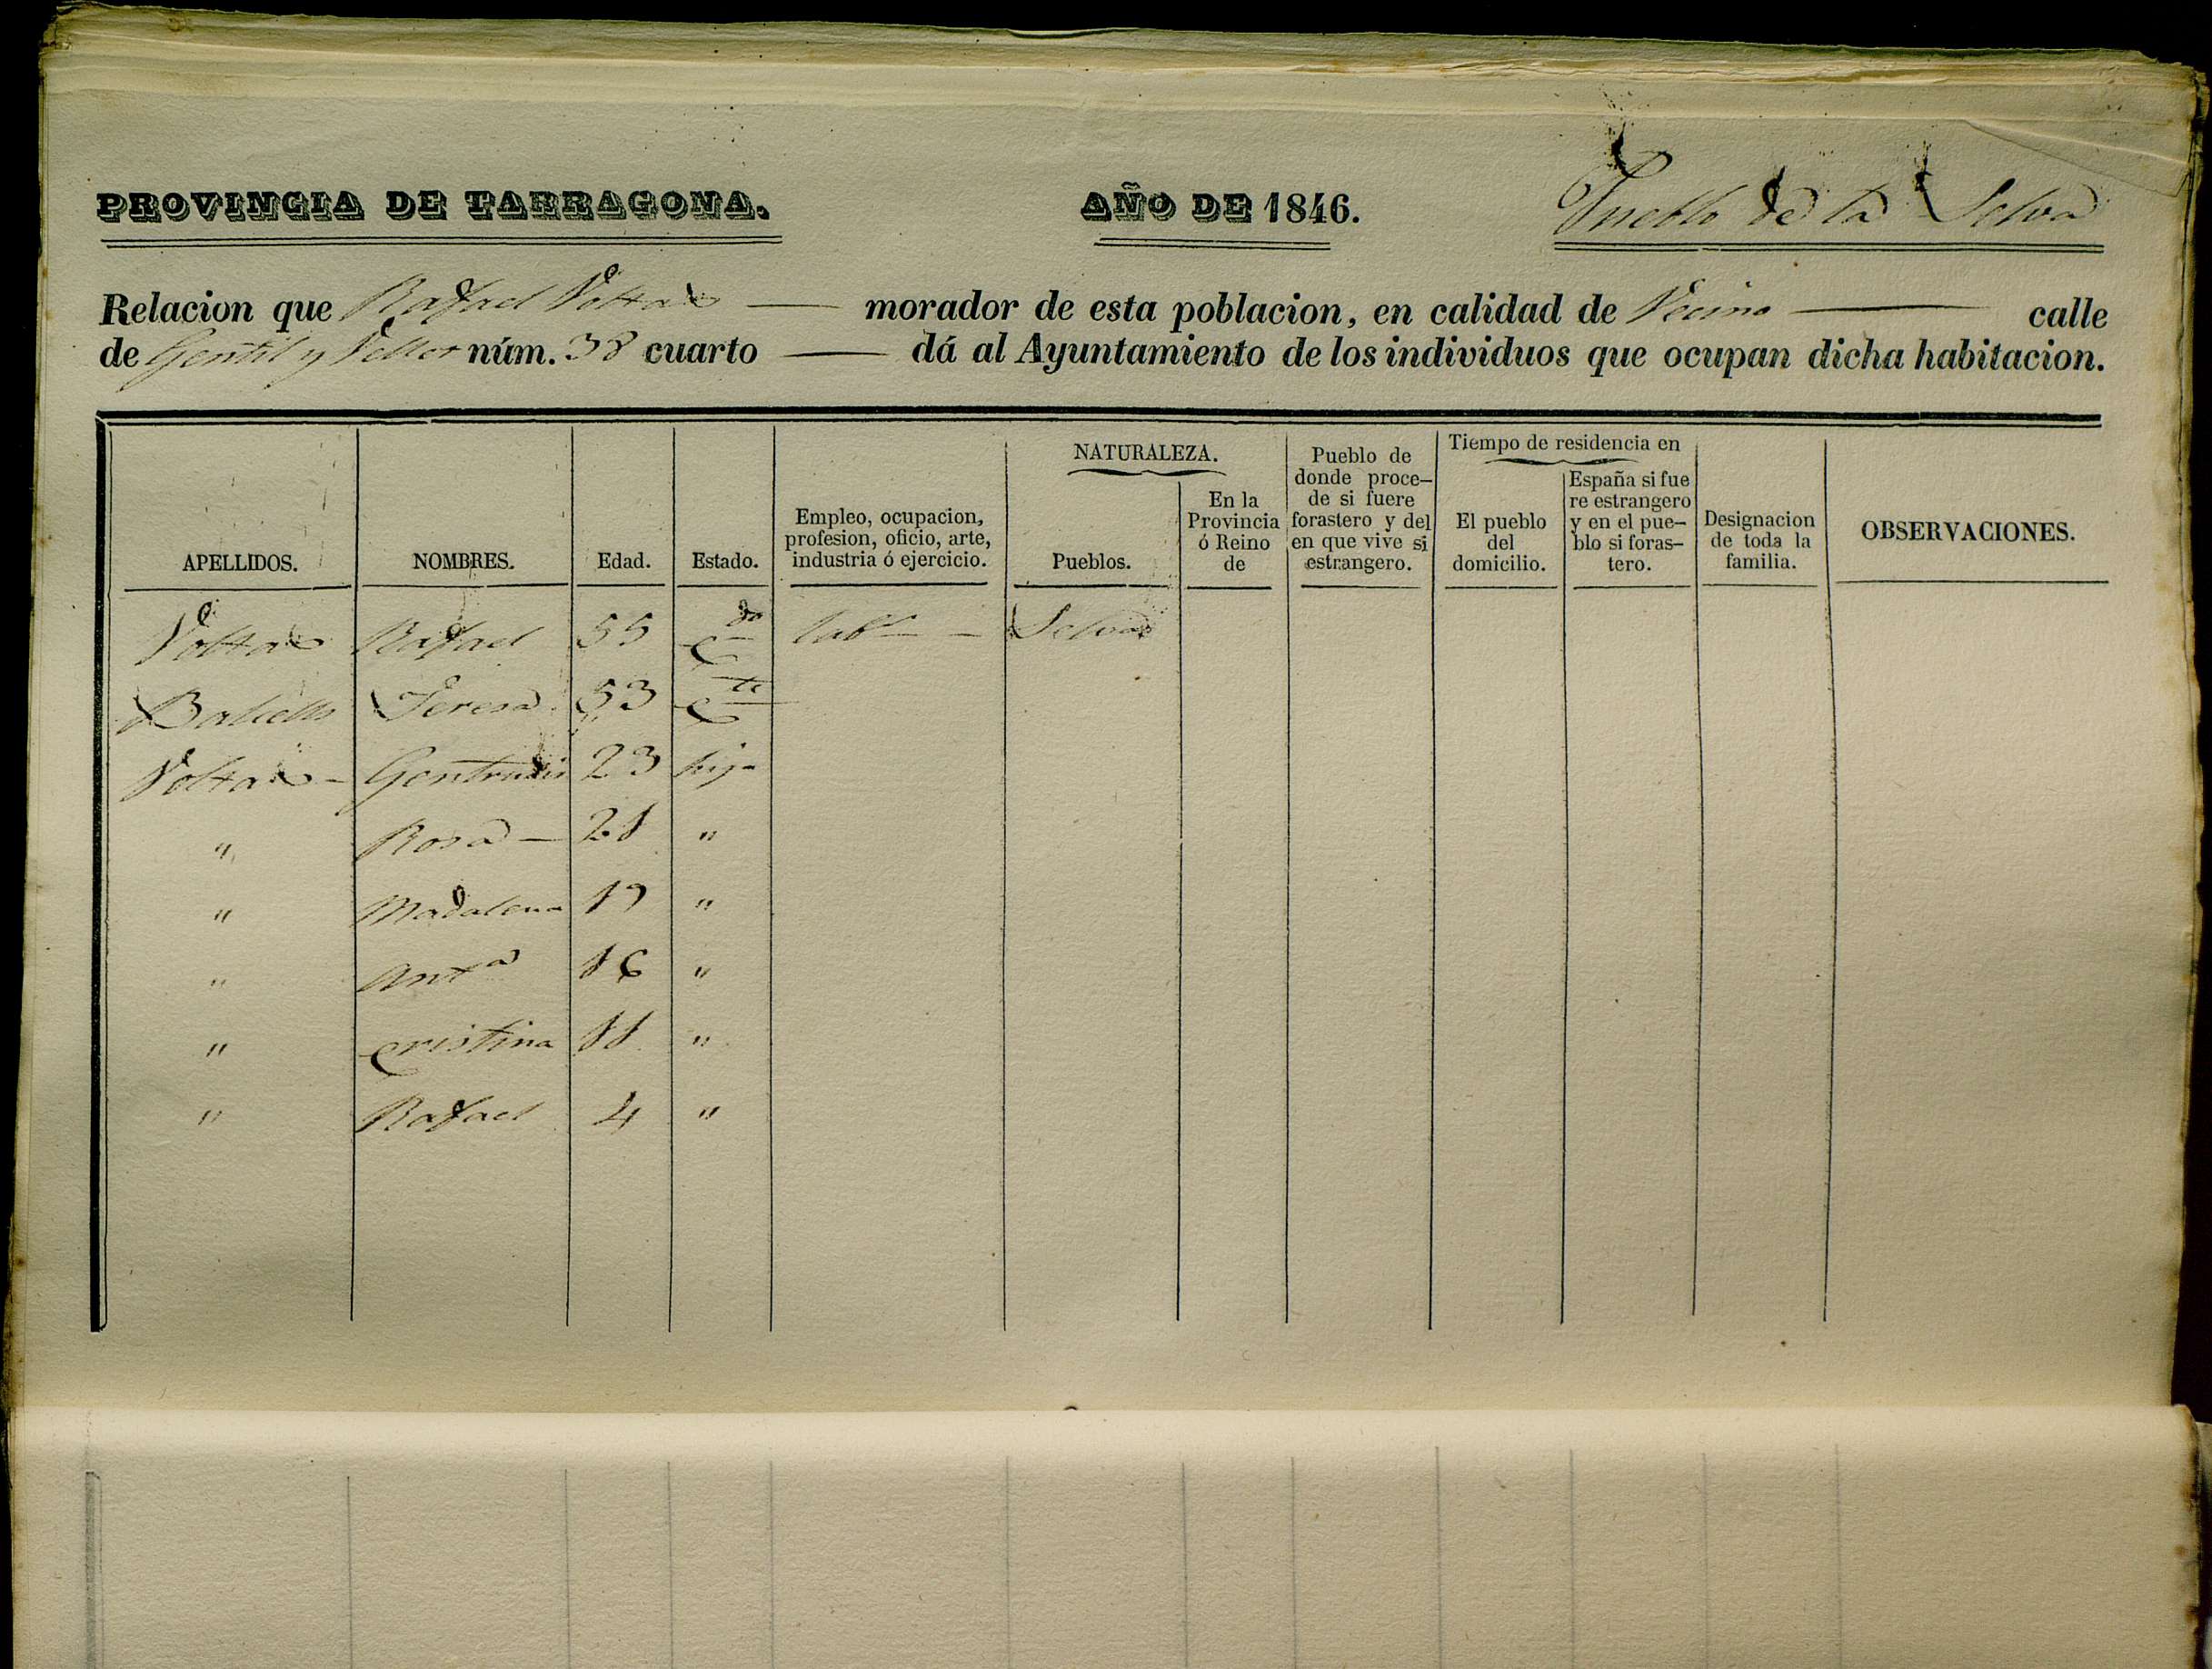 PROVINCIA DE TARRAGONA. AÑO DE 1846. Pueblo de la Selva
Relacion que Rafael Voltas — morador de esta poblacion, en calidad de Vecino — calle
de Gentil y núm. 38 cuarto — dá al Ayuntamiento de los individuos que ocupan dicha habitacion.
NATURALEZA.
Tiempo de residencia en
APELLIDOS.
NOMBRES.
Edad.
Estado.
Empleo, ocupacion,
profesion, oficio, arte,
industria ó ejercicio.
Pueblos.
En la
Provincia
ó Reino
de
Pueblo de
donde proce–
de si fuere
forastero y del
en que vive si
estrangero.
El pueblo
del
domicilio.
España si fue
re estrangero
y en el pue–
blo si foras–
tero.
Designacion
de toda la
familia.
OBSERVACIONES.
Voltas Rafael 55 C.do lab.r — Selva
Teresa 53 C.te
Voltas – Gertrudis 23 hija
" Rosa — 21 "
" Madalena 19 "
" Ant.a 16 "
" Cristina 11 "
" Rafael 4 "